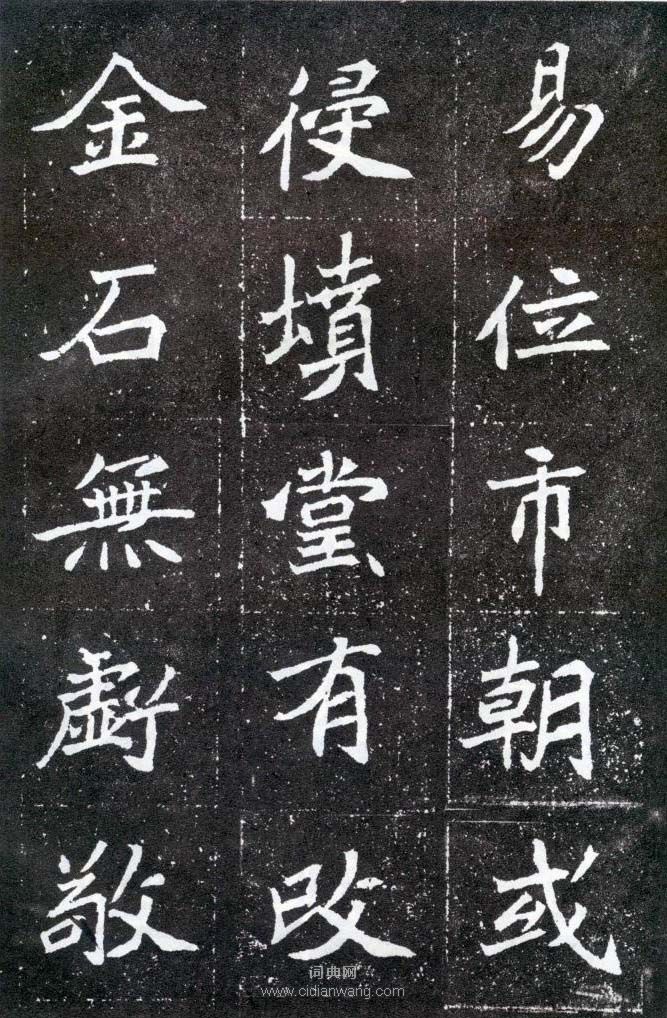 易位市朝或
侵墳堂有改
金石無虧敬
词典网
www.cidianwang.com